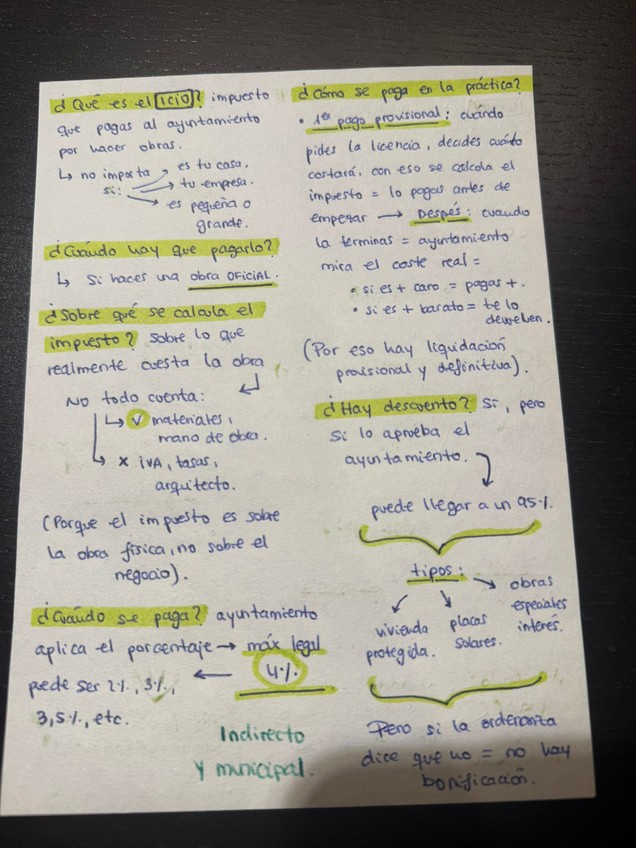 ¿Qué es el ICIO? impuesto
que pagas al ayuntamiento
por hacer obras.
↳ no importa → es tu casa.
si: → tu empresa.
→ es pequeña o
grande.
¿Cuándo hay que pagarlo?
↳ Si haces una obra OFICIAL.
¿Sobre qué se calcula el
impuesto? Sobre lo que
realmente cuesta la obra
No todo cuenta: ↵
↳ ✓ materiales,
mano de obra.
↳ x iVA, tasas,
arquitecto.
(Porque el impuesto es sobre
la obra física, no sobre el
negocio).
¿Cuándo se paga? ayuntamiento
aplica el porcentaje → máx legal
4%.
puede ser 2%, 3%, ←
3,5%, etc.
Indirecto
y municipal.
¿Cómo se paga en la práctica?
• 1er pago provisional: cuándo
pides la licencia, decides cuánto
costará, con eso se calcula el
impuesto = lo pagas antes de
empezar → Después: cuando
la terminas = ayuntamiento
mira el coste real =
• si es + caro = pagas +.
• si es + barato = te lo
devuelven.
(Por eso hay liquidación
provisional y definitiva).
¿Hay descuento? Sí, pero
Si lo aprueba el
ayuntamiento.
puede llegar a un 95%.
tipos: → obras
especiales
interés.
vivienda
protegida.
placas
solares.
Pero si la ordenanza
dice que no = no hay
bonificación.